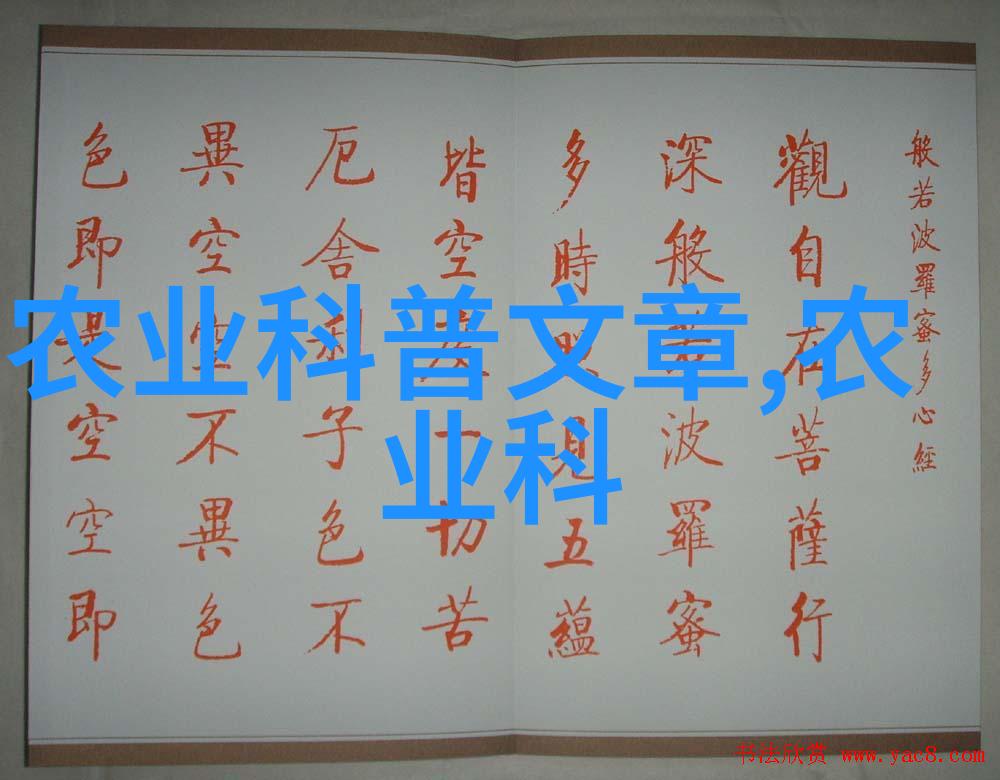 般若波羅蜜多心經
觀自在菩薩行
深般若波羅蜜
多時照見五蘊
皆空度一切苦
厄舍利子色不
異空空不異色
色即是空空即
农业科普文章,农
业科
书法欣赏 www.yac8.com